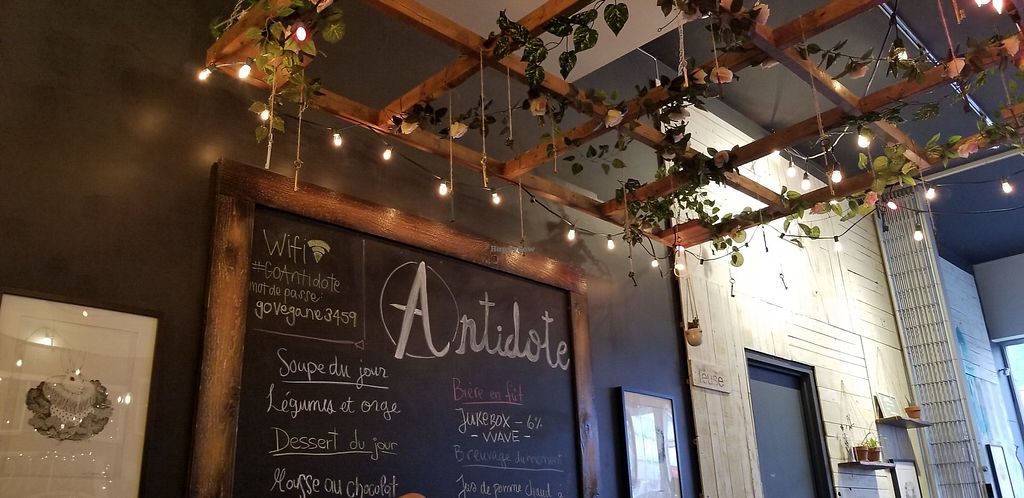 Wifi
#GOAntidote
mot de passe:
govegane3459
Antidote
Soupe du jour
Légumes et orge
Dessert du jour
Mousse au chocolat
Bière en fût
JUKEBOX - 6%
- WAVE -
Breuvage du moment
Jus de pomme chaud
HappyCow